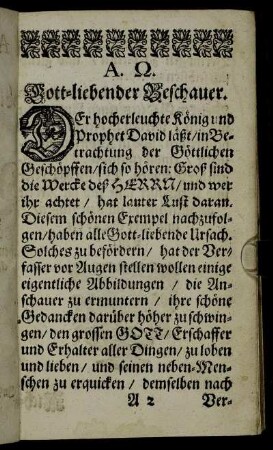 A. Ω.
Gott-liebender Beschauer.
DEr hocherleuchte König und
Prophet David läßt/in Be-
trachtung der Göttlichen
Geschöpffen/sich so hören: Groß sind
die Wercke deß HERRN/und wer
ihr achtet/ hat lauter Lust daran.
Diesem schönen Exempel nachzufol-
gen/haben alle Gott-liebende Ursach.
Solches zu befördern/ hat der Ver-
fasser vor Augen stellen wollen einige
eigentliche Abbildungen/ die An-
schauer zu ermuntern/ ihre schöne
Gedancken darüber höher zu schwin-
gen/den grossen GOTT/Erschaffer
und Erhalter aller Dingen/zu loben
und lieben/ und seinen neben-Men-
schen zu erquicken/ demselben nach
A 2 Ver-